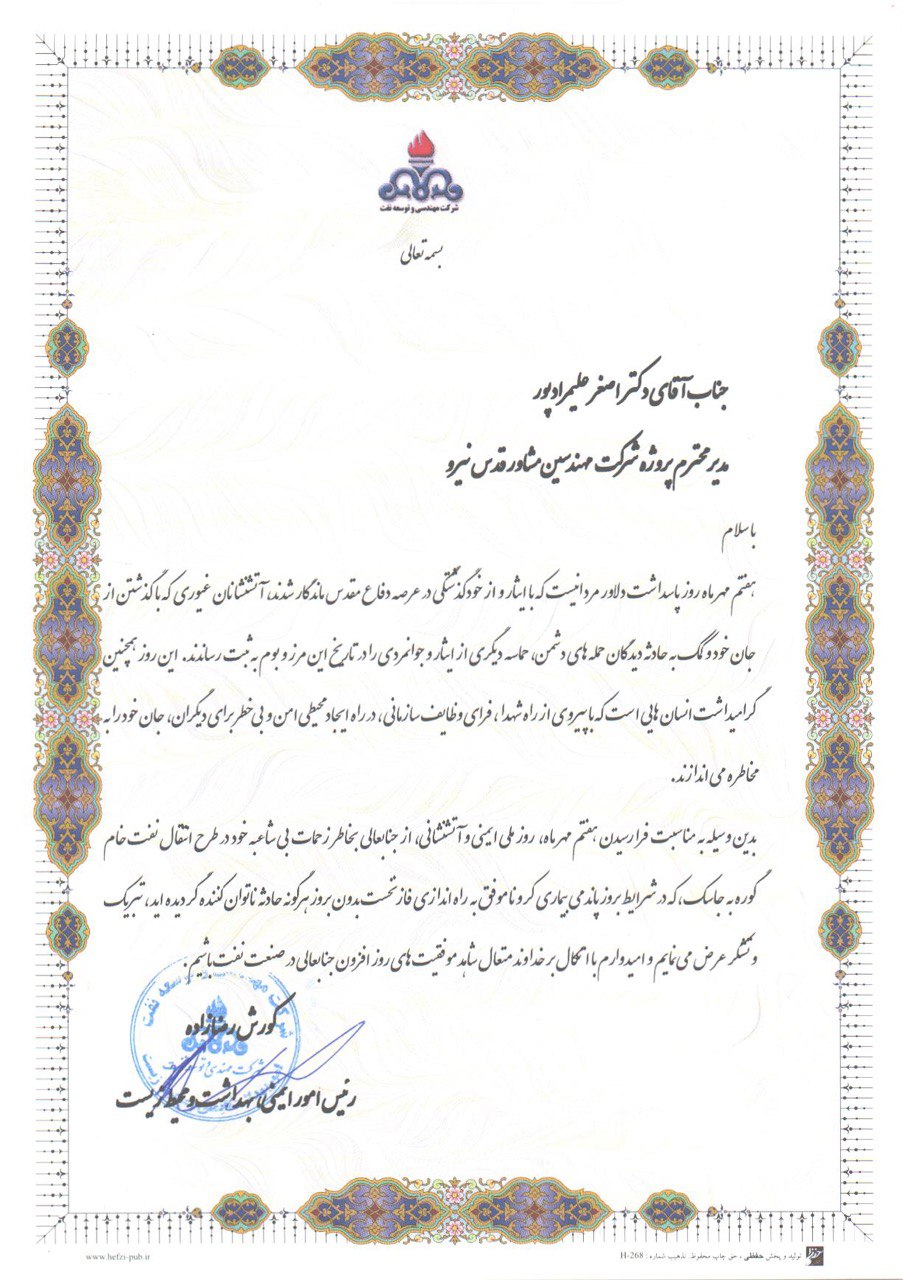 شرکت مهندسی و توسعه نفت
بسمه تعالی
جناب آقای دکتر اصغر علیمرادپور
مدیر محترم پروژه شرکت مهندسین مشاور قدس نیرو
با سلام
هفتم مهر ماه روز پاسداشت دلاور مردانیست که با ایثار و از خود گذشتگی در عرصه دفاع مقدس ماندگار شدند، آتشنشانان غیوری که با گذشتن از
جان خود و کمک به حادثه دیدگان حمله های دشمن، حماسه دیگری از ایثار و جوانمردی را در تاریخ این مرز و بوم به ثبت رساندند. این روز همچنین
گرامیداشت انسان هایی است که با پیروی از راه شهدا، فرای وظایف سازمانی، در راه ایجاد محیطی امن و بی خطر برای دیگران، جان خود را به
مخاطره می اندازند.
بدین وسیله به مناسبت فرا رسیدن هفتم مهر ماه، روز ملی ایمنی و آتشنشانی، از جنابعالی بخاطر زحمات بی شائبه خود در طرح انتقال نفت خام
گوره به جاسک، که در شرایط بروز پاندمی بیماری کرونا موفق به راه اندازی فاز نخست بدون بروز هرگونه حادثه ناتوان کننده گردیده اید، تبریک
و تشکر عرض می نمایم و امیدوارم با اتکال بر خداوند متعال شاهد موفقیت های روز افزون جنابعالی در صنعت نفت باشیم.
کورش رضازاده
رئیس امور ایمنی، بهداشت و محیط زیست
شرکت مهندسی و توسعه نفت
www.hefzi-pub.ir
تولید و پخش حفظی، حق چاپ محفوظ تذهیب شماره: H-268